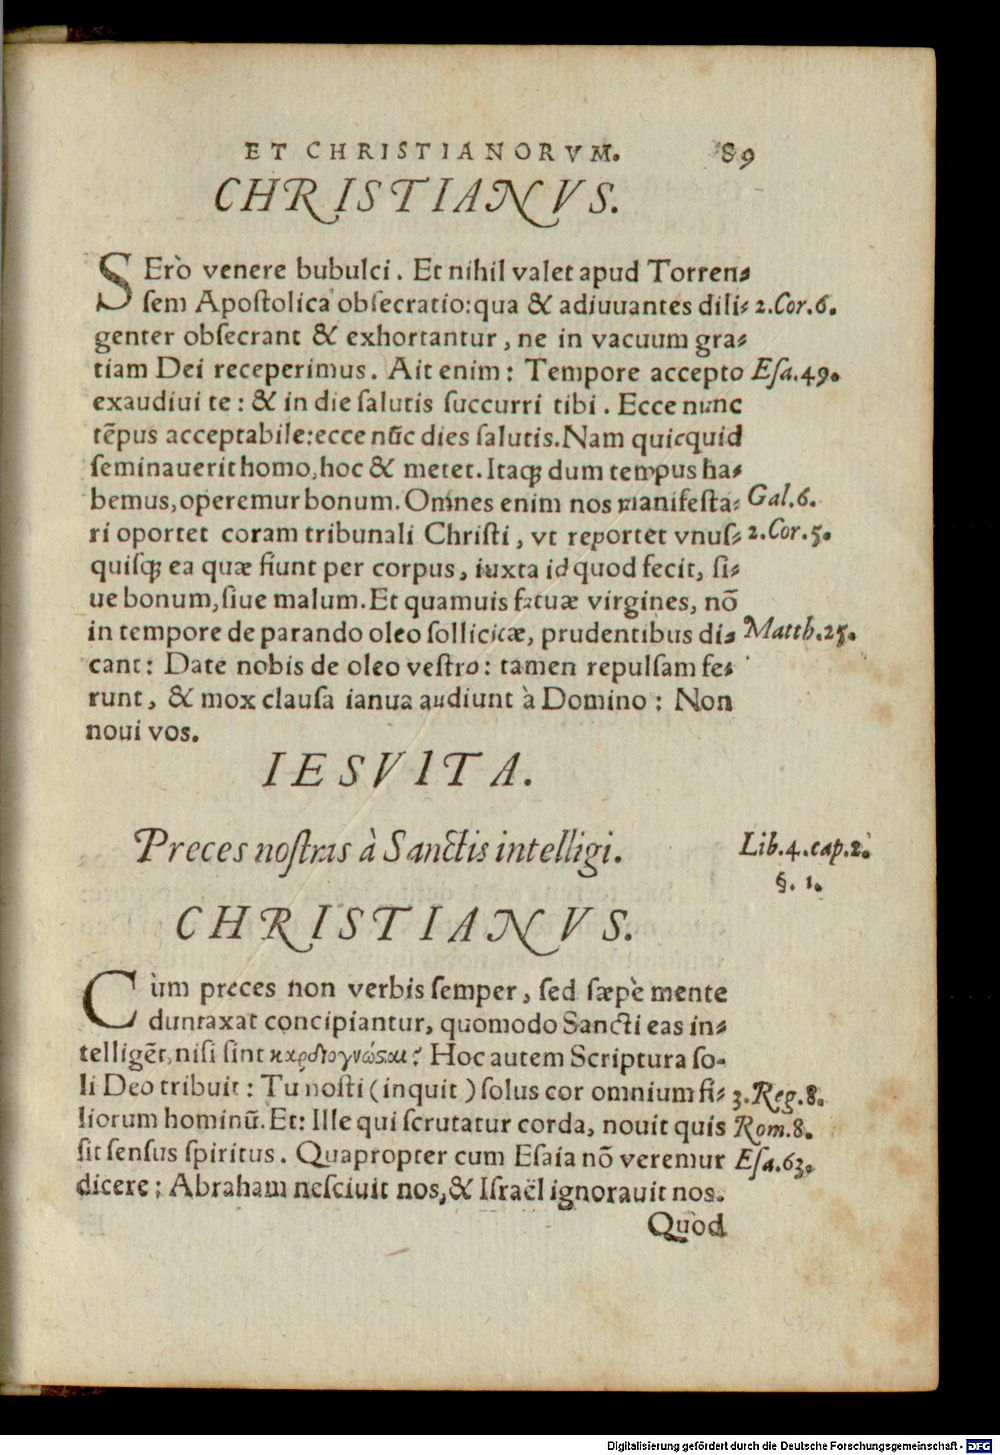 ET CHRISTIANORVM. 89
CHRISTIANVS.
SErò venere bubulci. Et nihil valet apud Torren-
sem Apostolica obsecratio: qua & adiuuantes dili- 2.Cor.6.
genter obsecrant & exhortantur, ne in vacuum gra-
tiam Dei receperimus. Ait enim: Tempore accepto Esa.49.
exaudiui te: & in die salutis succurri tibi. Ecce nunc
tẽpus acceptabile: ecce nũc dies salutis. Nam quicquid
seminauerit homo, hoc & metet. Itaq; dum tempus ha-
bemus, operemur bonum. Omnes enim nos manifesta- Gal.6.
ri oportet coram tribunali Christi, vt reportet vnus- 2.Cor.5.
quisq; ea quæ fiunt per corpus, iuxta id quod fecit, si-
ue bonum, siue malum. Et quamuis fatuæ virgines, nõ
in tempore de parando oleo sollicitæ, prudentibus di- Matth.25.
cant: Date nobis de oleo vestro: tamen repulsam fe-
runt, & mox clausa ianua audiunt à Domino: Non
noui vos.
IESVITA.
Preces nostras à Sanctis intelligi. Lib.4.cap.2.
§. 1.
CHRISTIANVS.
Cùm preces non verbis semper, sed sæpè mente
duntaxat concipiantur, quomodo Sancti eas in-
telligẽt, nisi sint καρδιογνῶσαι? Hoc autem Scriptura so-
li Deo tribuit: Tu nosti (inquit) solus cor omnium fi- 3.Reg.8.
liorum hominũ. Et: Ille qui scrutatur corda, nouit quis Rom.8.
sit sensus spiritus. Quapropter cum Esaia nõ veremur Esa.63.
dicere: Abraham nesciuit nos, & Israël ignorauit nos.
Quòd
Digitalisierung gefördert durch die Deutsche Forschungsgemeinschaft - DFG